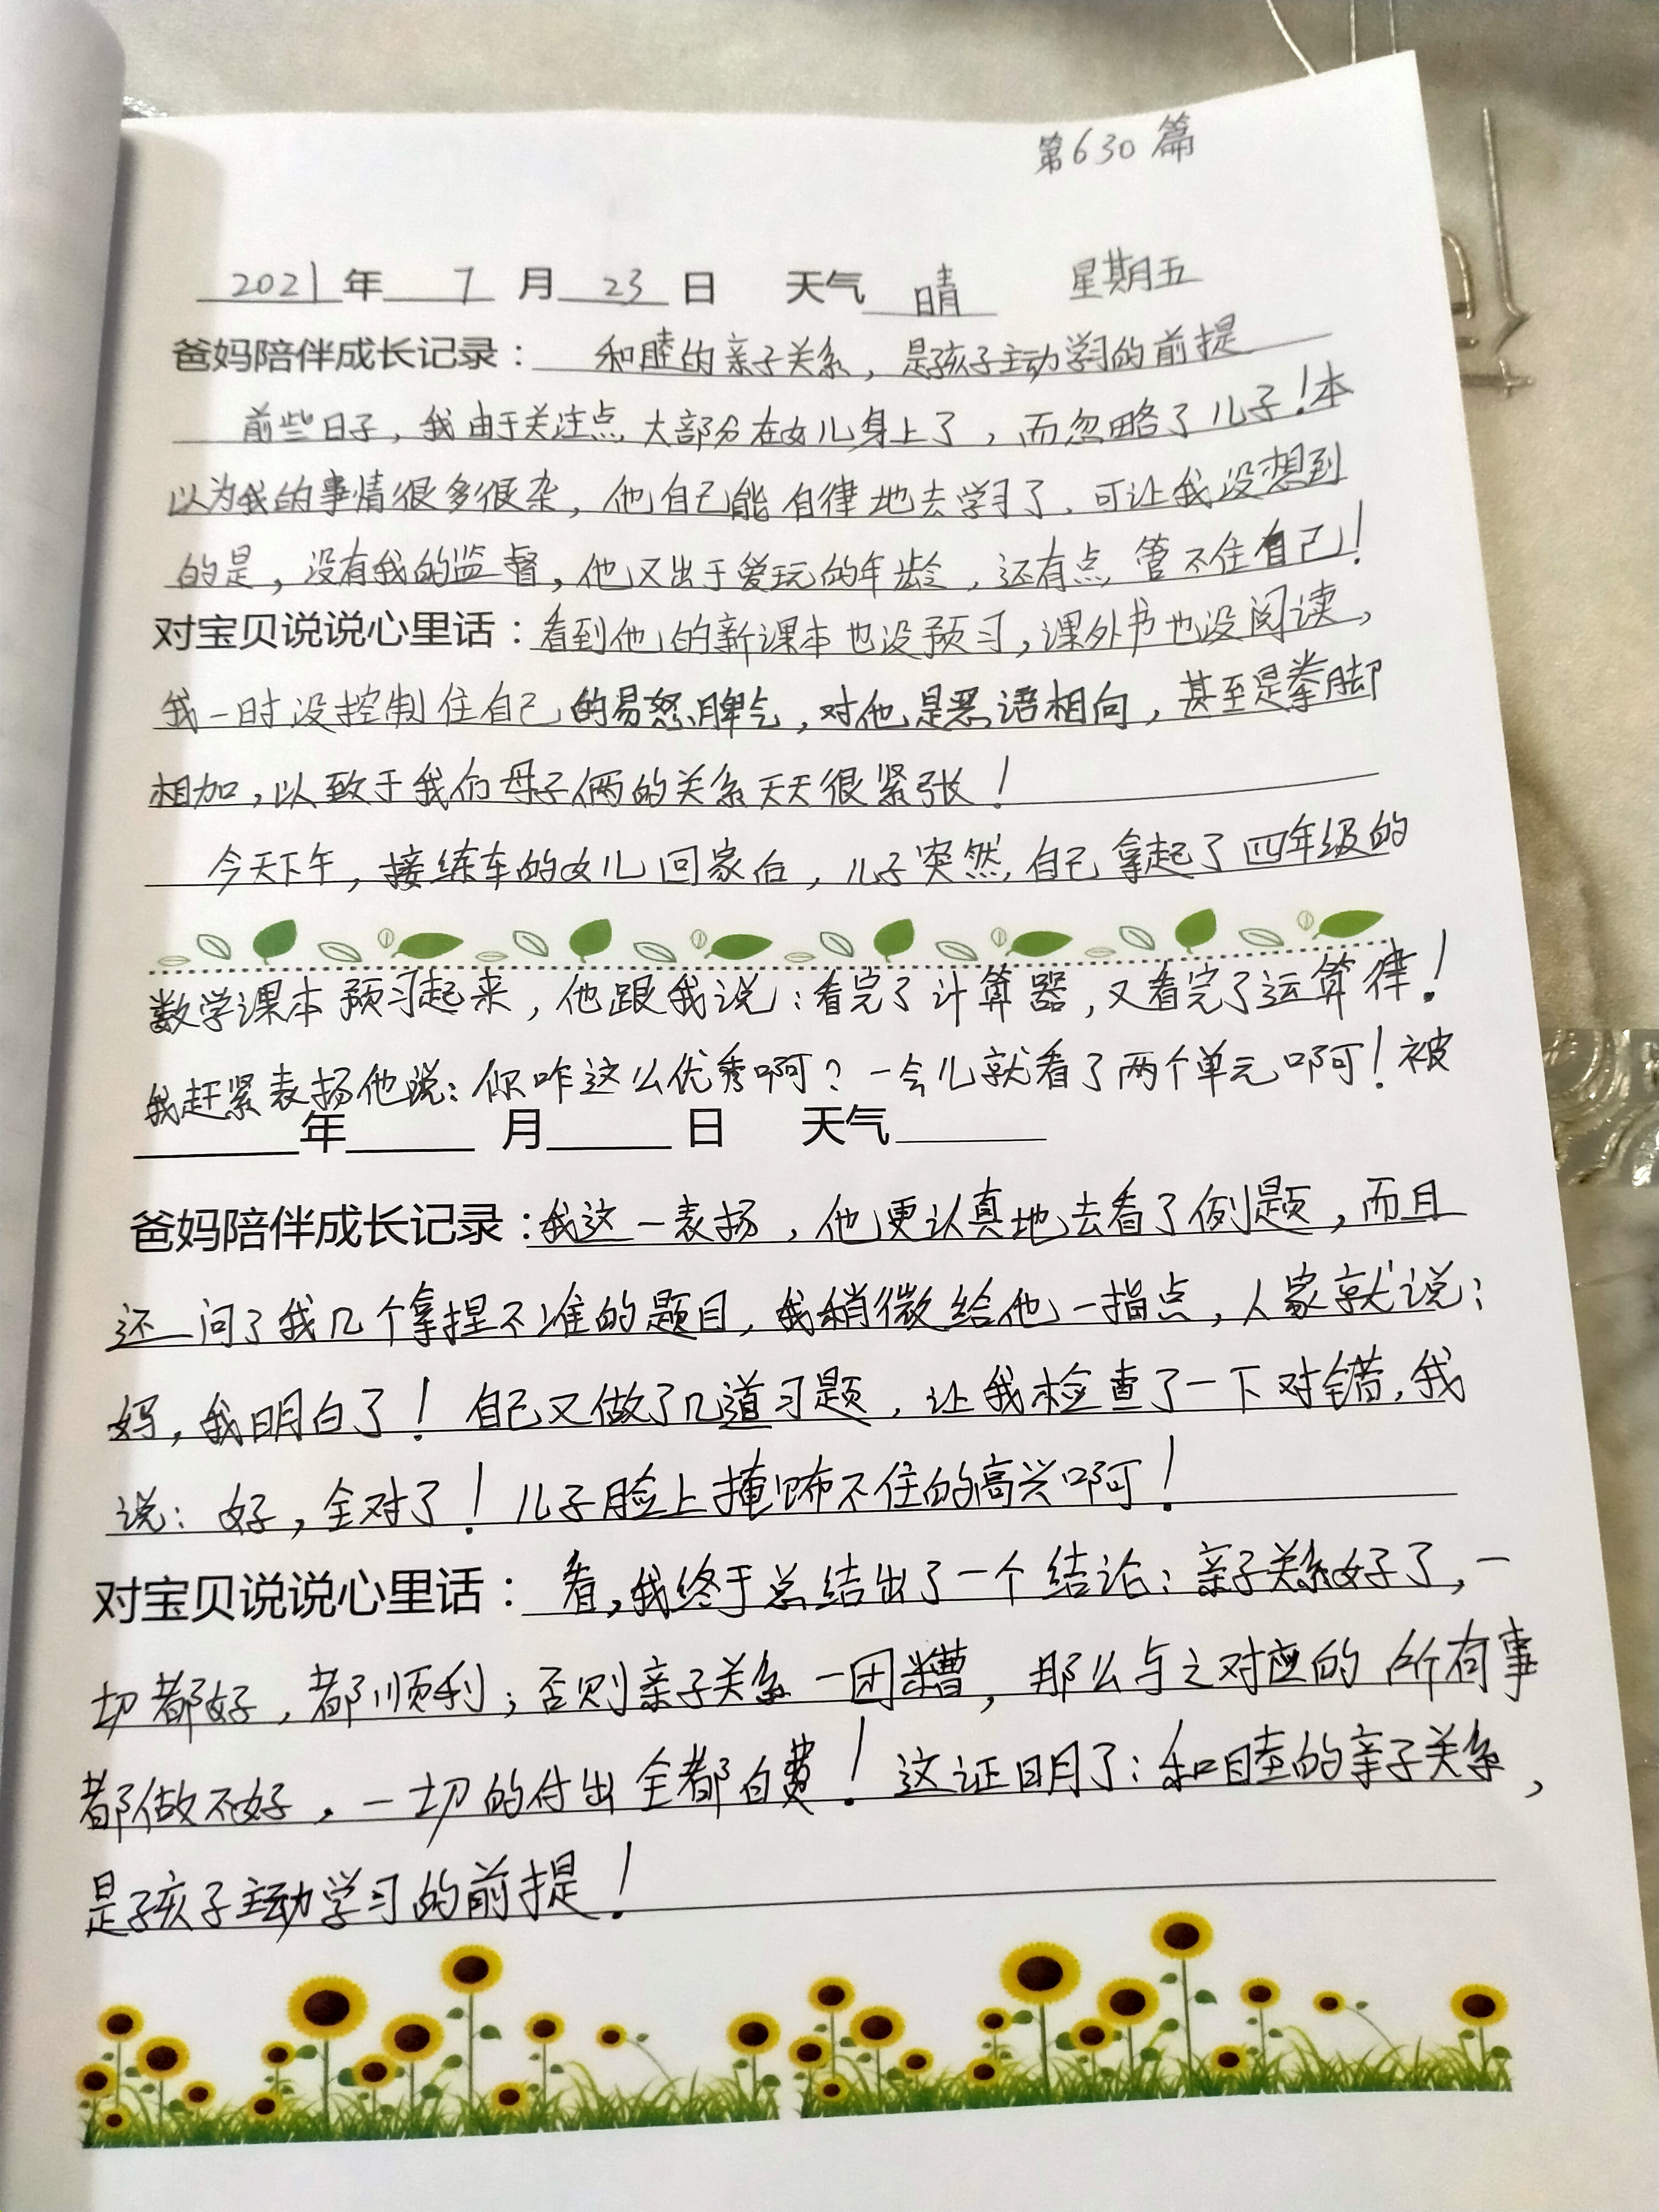 第630篇
2021年 7 月 23 日 天气 晴 星期五
爸妈陪伴成长记录：和睦的亲子关系，是孩子主动学习的前提
前些日子，我由于关注点大部分在女儿身上了，而忽略了儿子！本
以为我的事情很多很杂，他自己能自律地去学习了，可让我没想到
的是，没有我的监督，他又出于爱玩的年龄，还有点管不住自己！
对宝贝说说心里话：看到他的新课本也没预习，课外书也没阅读，
我一时没控制住自己的易怒脾气，对他是恶语相向，甚至是拳脚
相加，以致于我们母子俩的关系天天很紧张！
今天下午，接练车的女儿回家后，儿子突然自己拿起了四年级的
数学课本预习起来，他跟我说：看完了计算器，又看完了运算律！
我赶紧表扬他说：你咋这么优秀啊？一会儿就看了两个单元啊！被
年 月 日 天气
爸妈陪伴成长记录：我这一表扬，他更认真地去看了例题，而且
还问了我几个拿捏不准的题目，我稍微给他一指点，人家就说：
妈，我明白了！自己又做了几道习题，让我检查了一下对错，我
说：好，全对了！儿子脸上掩饰不住的高兴啊！
对宝贝说说心里话：看，我终于总结出了一个结论：亲子关系好了，一
切都好，都顺利；否则亲子关系一团糟，那么与之对应的所有事
都做不好，一切的付出全都白费！这证明了：和睦的亲子关系，
是孩子主动学习的前提！